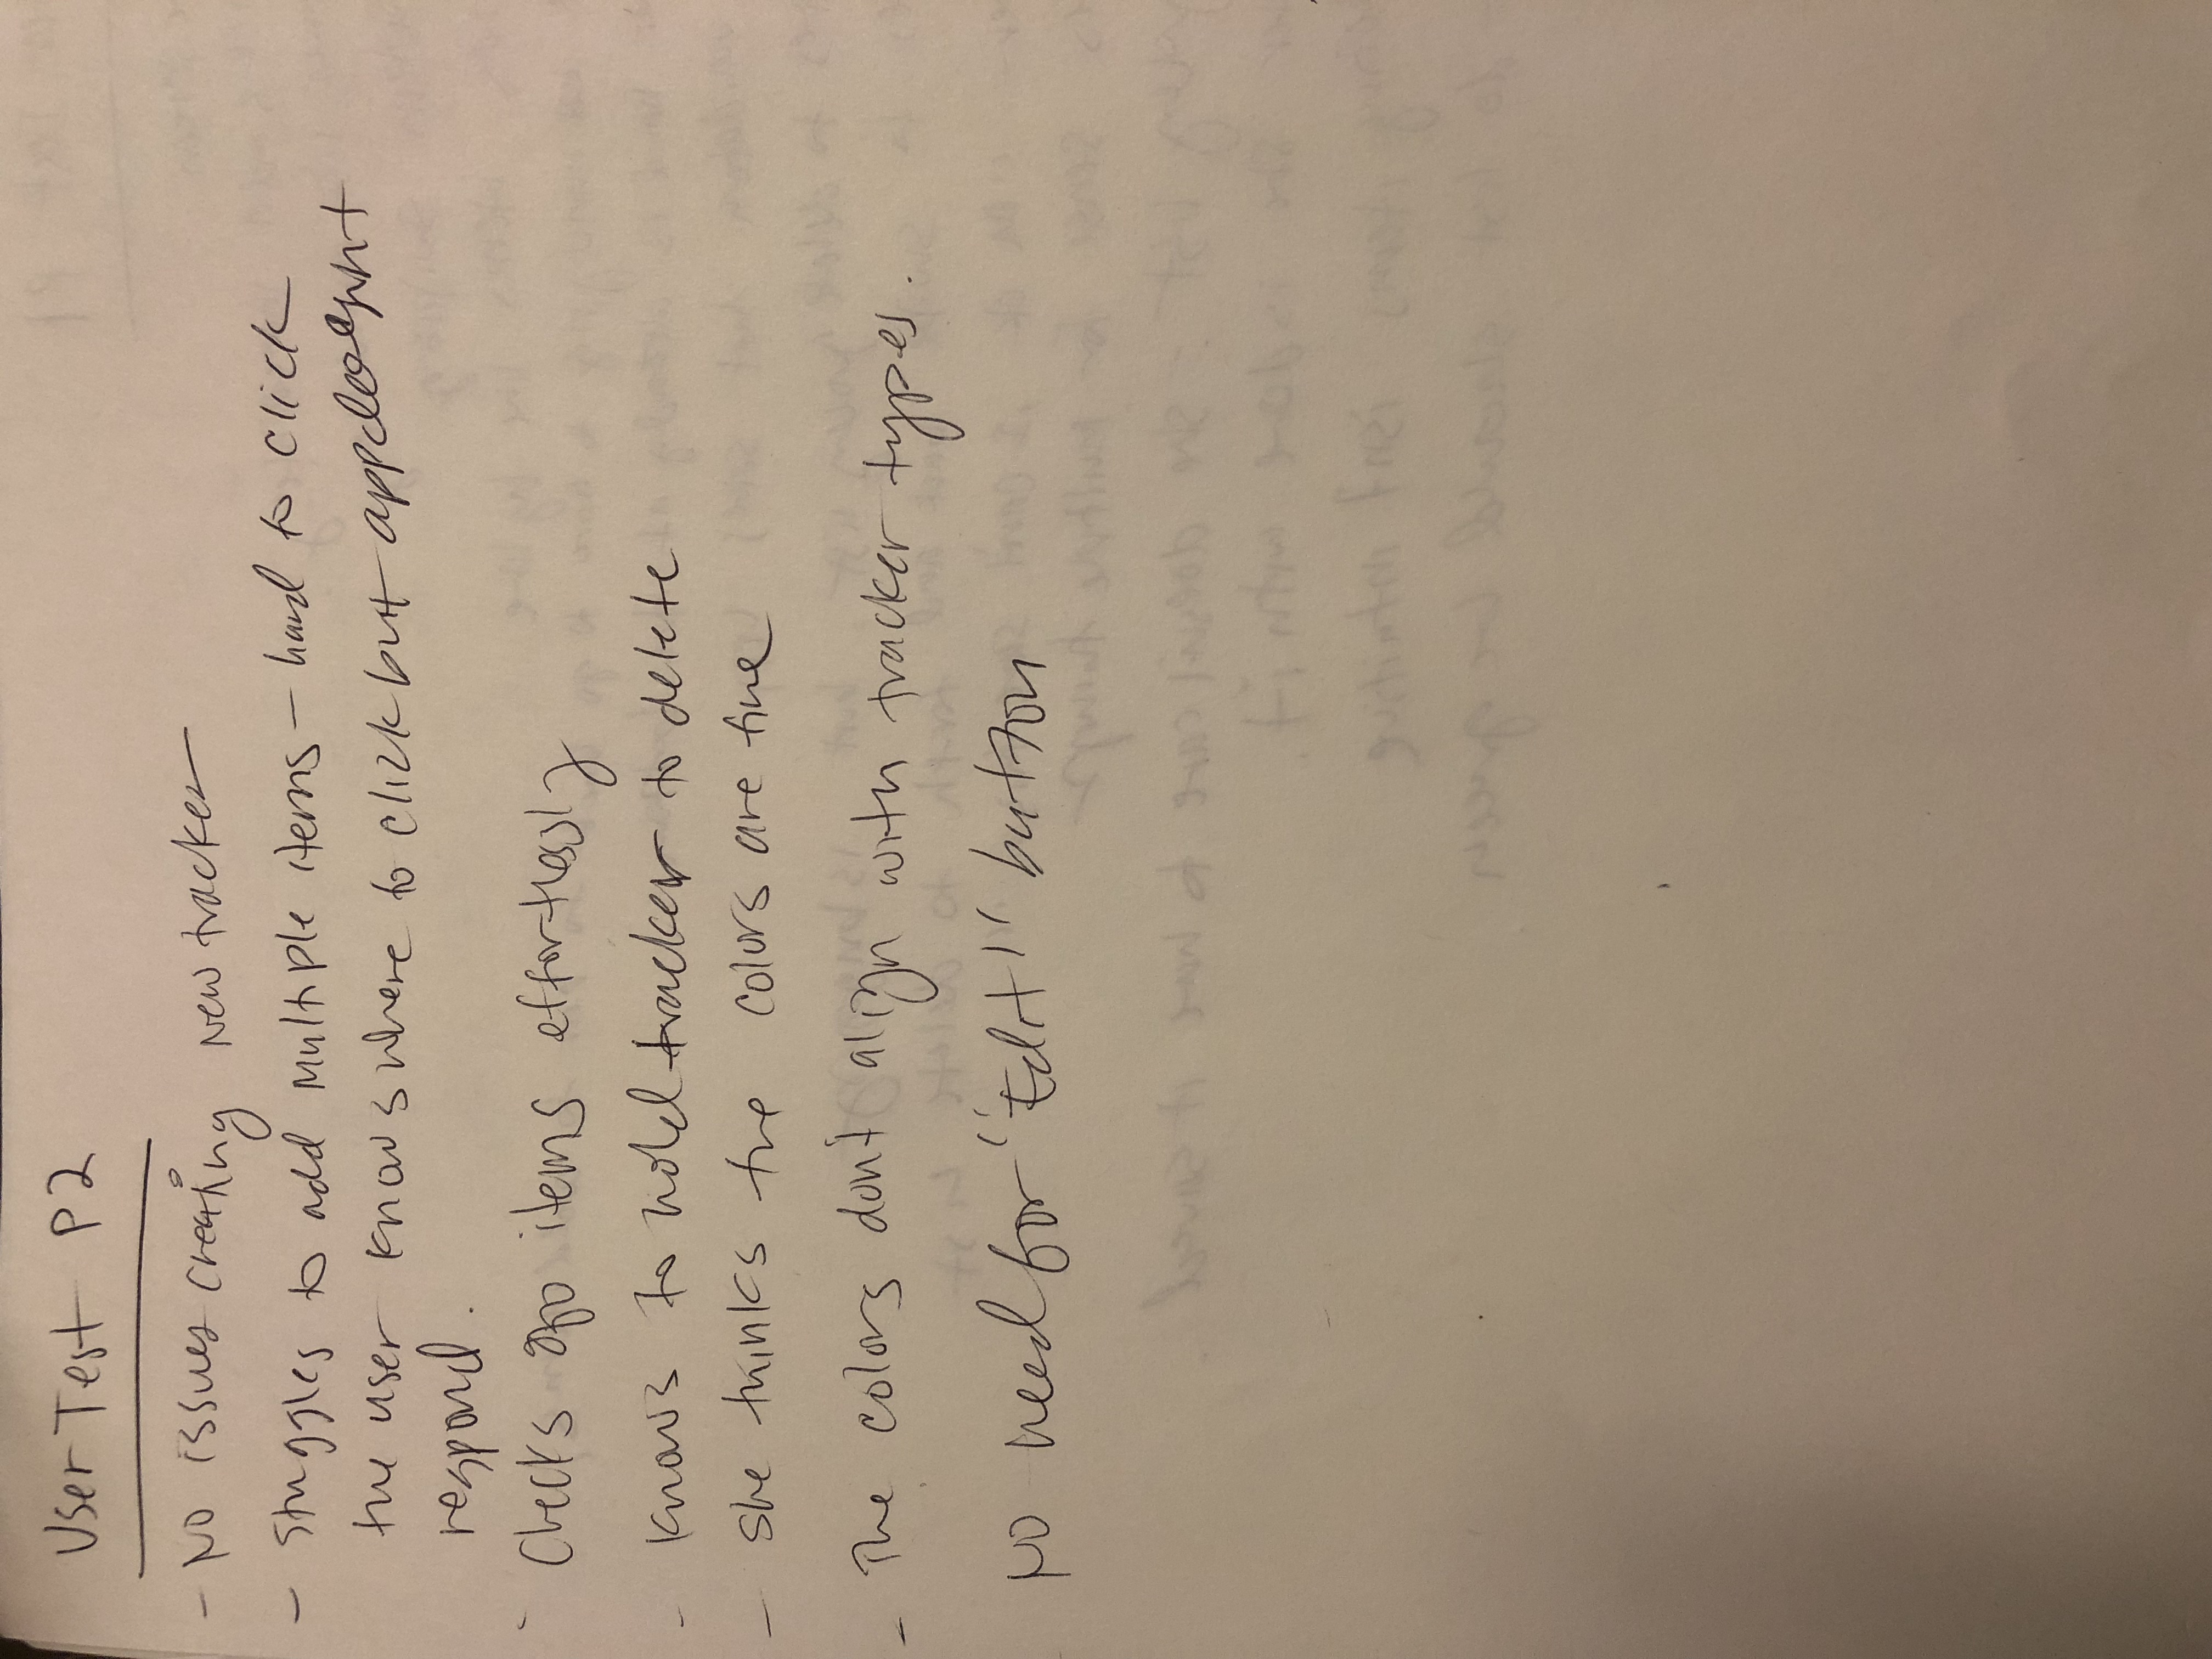 User Test P2
- No issues creating new tracker
- Stuggles to add multiple items - hard to click
the user knows where to click but app doesnt
respond.
- Checks off items effortlessly
- knows to hold tracker to delete
- She thinks the colors are fine
- The colors don't align with tracker types.
No need for "Edit" button